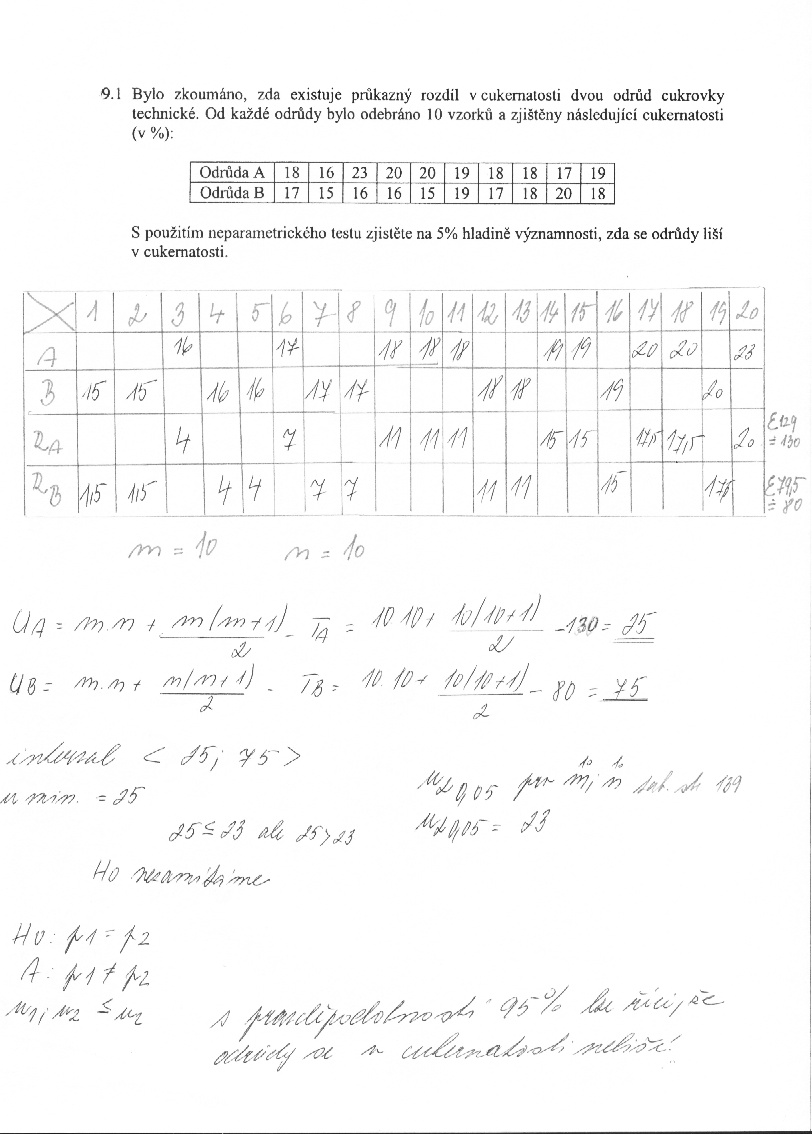 9.1 Bylo zkoumáno, zda existuje průkazný rozdíl v cukernatosti dvou odrůd cukrovky
technické. Od každé odrůdy bylo odebráno 10 vzorků a zjištěny následující cukernatosti
(v %):
Odrůda A 18 16 23 20 20 19 18 18 17 19
Odrůda B 17 15 16 16 15 19 17 18 20 18
S použitím neparametrického testu zjistěte na 5% hladině významnosti, zda se odrůdy liší
v cukernatosti.
X 1 2 3 4 5 6 7 8 9 10 11 12 13 14 15 16 17 18 19 20
A 16 17 18 18 18 19 19 20 20 23
B 15 15 16 16 17 17 18 18 19 20
RA 4 7 11 11 11 15 15 17,5 17,5 20 Σ129 ≐ 130
RB 1,5 1,5 4 4 7 7 11 11 15 17,5 Σ79,5 ≐ 80
m = 10 n = 10
UA = m.n + m(m+1)/2 - TA = 10.10 + 10(10+1)/2 - 130 = 25
UB = m.n + n(n+1)/2 - TB = 10.10 + 10(10+1)/2 - 80 = 75
interval < 25; 75 >
u min. = 25
uα 0,05 pro m; n 10 10 tab. str 139
25 ≤ 23 ale 25 > 23
uα 0,05 = 23
H0 nezamítáme
H0: μ1 = μ2
A: μ1 ≠ μ2
u1; u2 ≤ uα
s pravděpodobností 95% lze říci, že
odrůdy se v cukernatosti neliší.